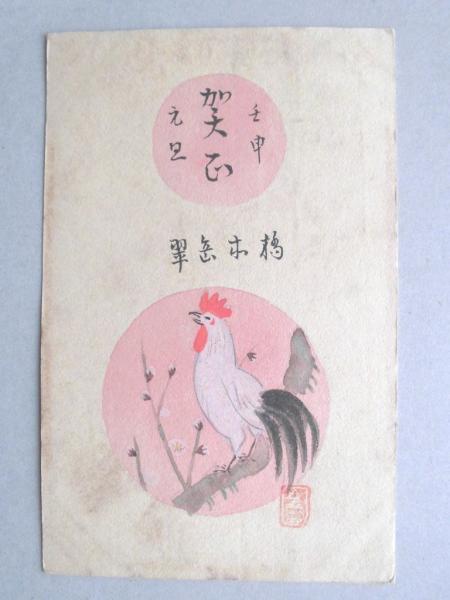 壬申
賀正
元旦
橋本岳翠